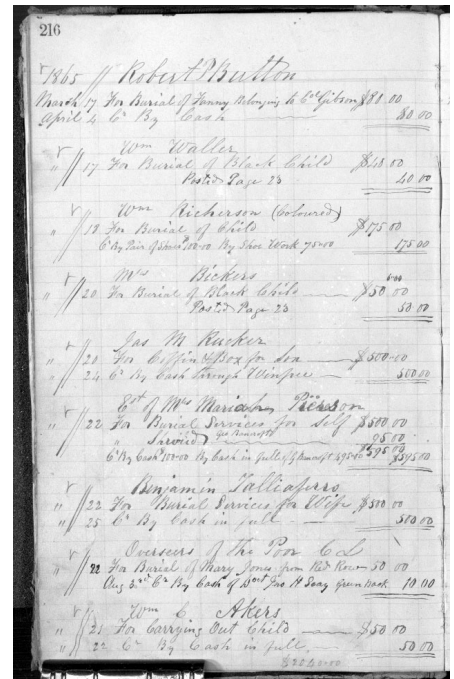 216
1865 // Robert Button
March 17 For Burial of Fanny Belonging to Est Gibson $80.00
April 4 Cr By Cash 80.00
Wm Waller
" // 17 For Burial of Black Child
Posted Page 23 40 00
Wm Richerson (Coloured)
" // 18 For Burial of Child $175 00
Cr By Pair of Shoes 100.00 By Shoe Work 75.00 175 00
Mrs Bickers
" // 20 For Burial of Black Child $50 00
Posted Page 23 50 00
Jas M Rucker
" // 20 For Coffin & Box for Son $500.00
" // 24 Cr By Cash through Winfree 500 00
Est of Mrs Pierson
" // 22 For Burial Services for Self $500 00
" 95 00
$595 00
Cr By Cash 100.00 By Cash in full of 495.00 $595.00
Benjamin Talliaferro
" // 22 For Burial Services for Wife $500 00
" // 25 Cr By Cash in full 500 00
Overseers of The Poor C L
" // 22 For Burial of Mary Jones from Red Row 50 00
Aug 3rd Cr By Cash of Jno H Seay Green back 10 00
Wm C Akers
" // 21 For Carrying Out Child $50 00
" // 22 Cr By Cash in full 50 00